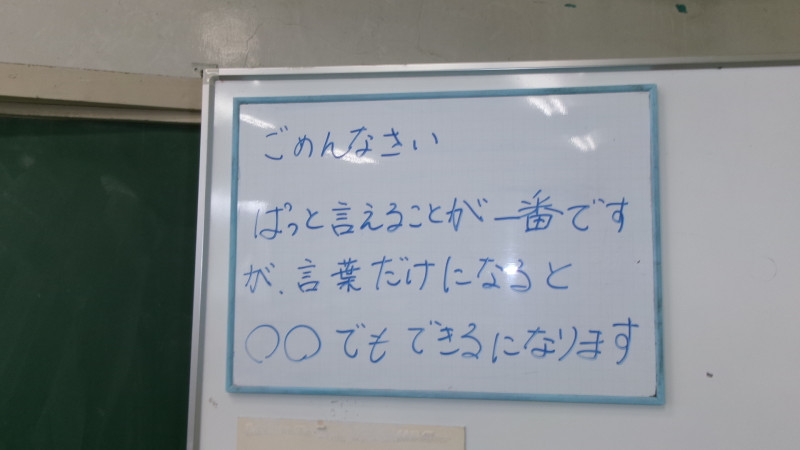 ごめんなさい
ぱっと言えることが一番です
が、言葉だけになると
○○でもできるになります